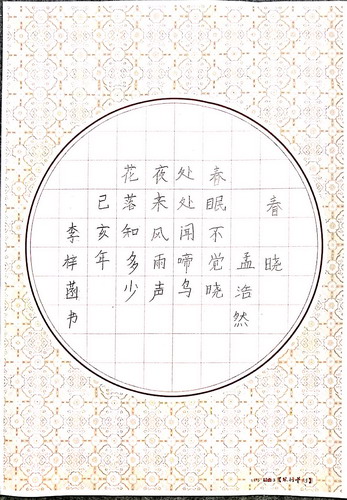 春晓
孟浩然
春眠不觉晓
处处闻啼鸟
夜来风雨声
花落知多少
己亥年
李梓菡书